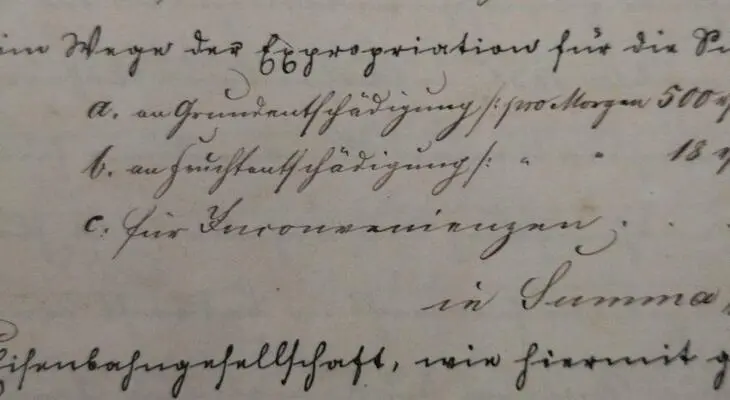 im Wege der Expropriation für die Su
a. an Grundentschädigung /: pro Morgen 500
b. an Fruchtentschädigung /: " " 18
c. für Inconvenienzen . . .
in Summa
Eisenbahngesellschaft, wie hiermit g